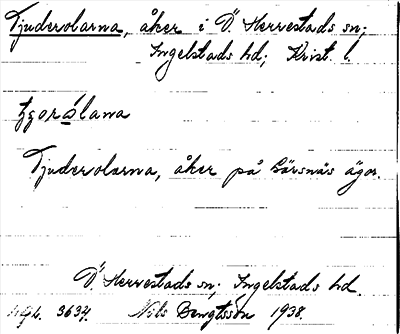 Tjuderolarna, åker i Ö. Herrestads sn;
Ingelstads hd; Krist. l.
tjorólana
Tjuderolarna, åker på Bärsnäs ägor.
Ö. Herrestads sn; Ingelstads hd.
3634. Nils Bengtsson 1938.